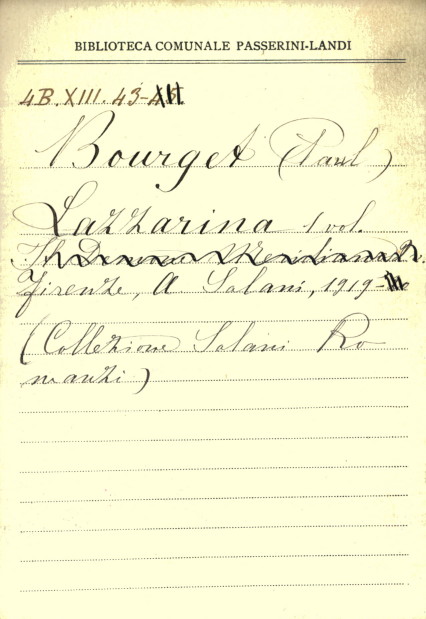 BIBLIOTECA COMUNALE PASSERINI-LANDI
4B. XIII. 43-
Bourget (Paul)
Lazzarina 1 vol.
Firenze, A Salani, 1919-
(Collezione Salani Ro
manzi)